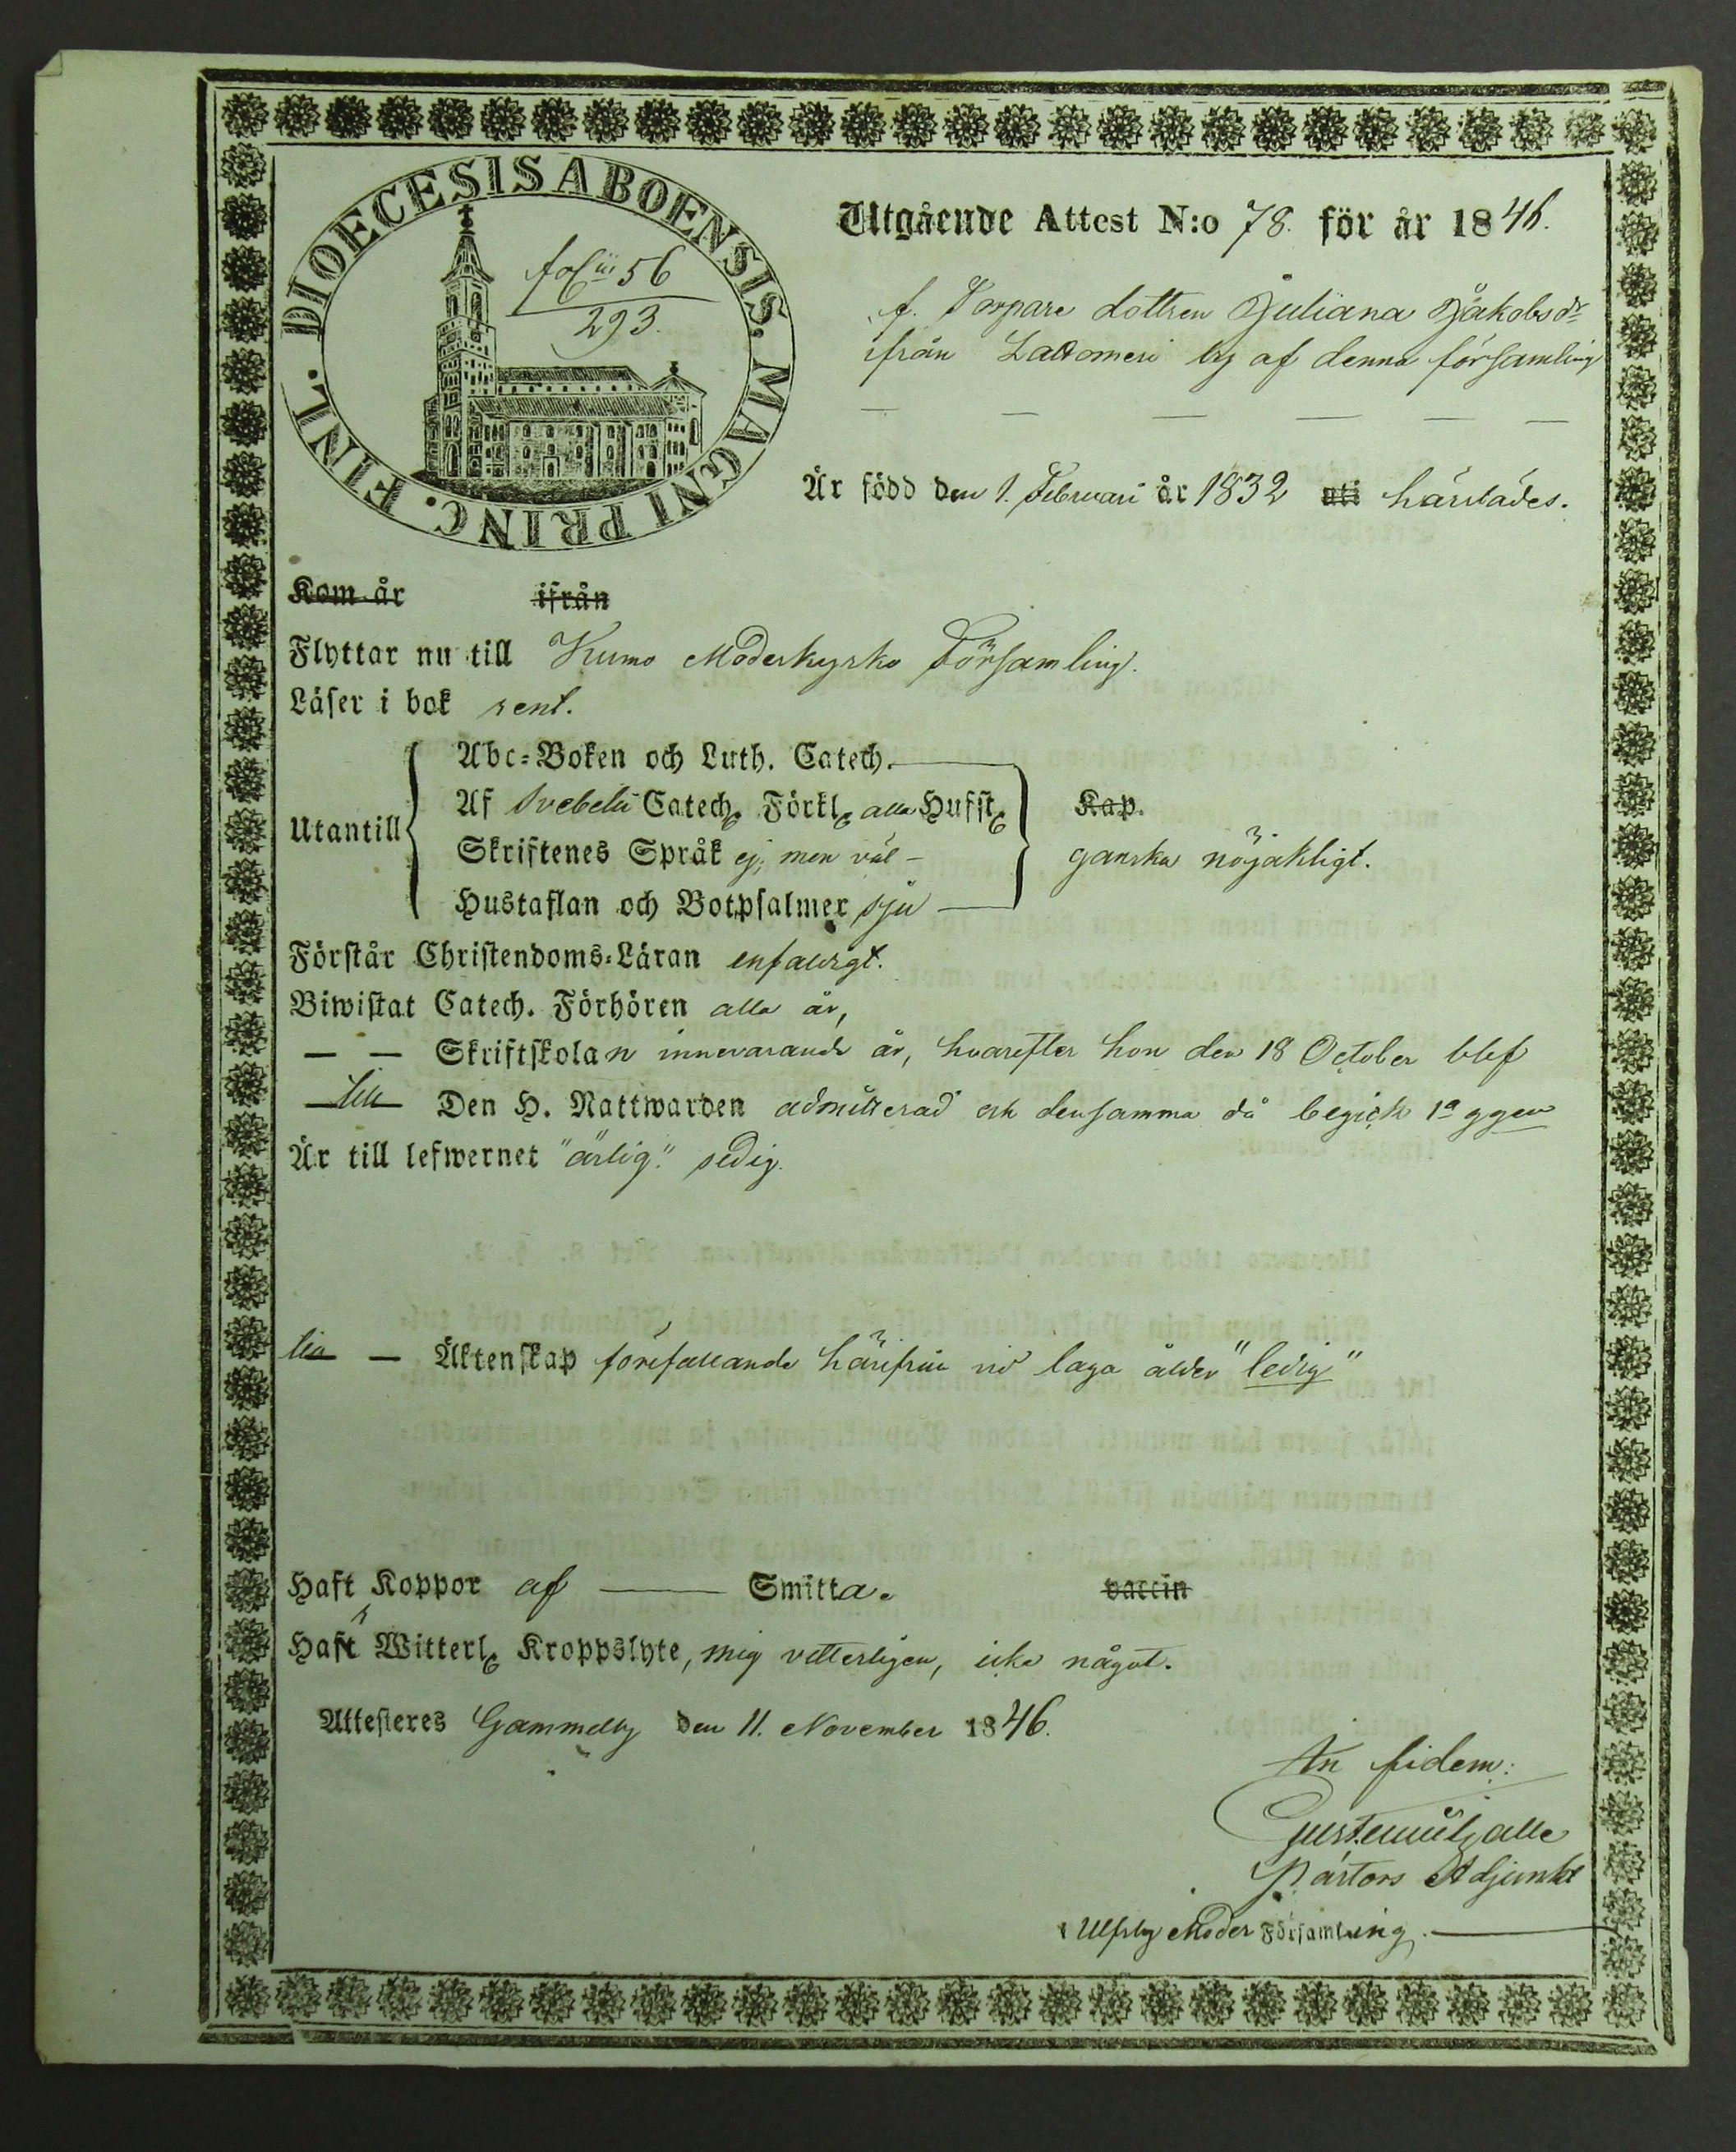 DIOECESIS ABOENSIS. MAGNI PRINC. FINL.
fol. 56
293.
Utgående Attest N:o 78. för år 1846.
f. Torpare dottren Juliana Jakobsdr
ifrån Lattomeri by af denna församling
Är född den 1. Februari år 1832 uti härstädes.
Kom år ifrån
Flyttar nu till Kumo Moderkyrko Församling.
Läser i bok rent.
Utantill
Abc-Boken och Luth. Catech.
Af Svebelii Catech. Förkl. alla Hufst. Kap.
Skriftenes Språk ej, men väl – ganska nöjaktligt.
Hustaflan och Botpsalmer sju
Förstår Christendoms-Läran enfaldigt.
Biwistat Catech. Förhören alla år,
— — Skriftskolan innevarande år, hvarefter hon den 18 October blef
till Den H. Nattwarden admitterad och densamma då begick 1a ggen
Är till lefwernet "ärlig." sedig.
till — Äktenskap förefallande härifrån vid laga ålder "ledig"
Haft Koppor af — Smitta. vaccin
Haft Witterl. Kroppslyte, mig vetterligen, icke något.
Attesteres Gammelby den 11. November 1846.
In fidem:
Pastors Adjunkt
i Ulfsby Moder Församling.